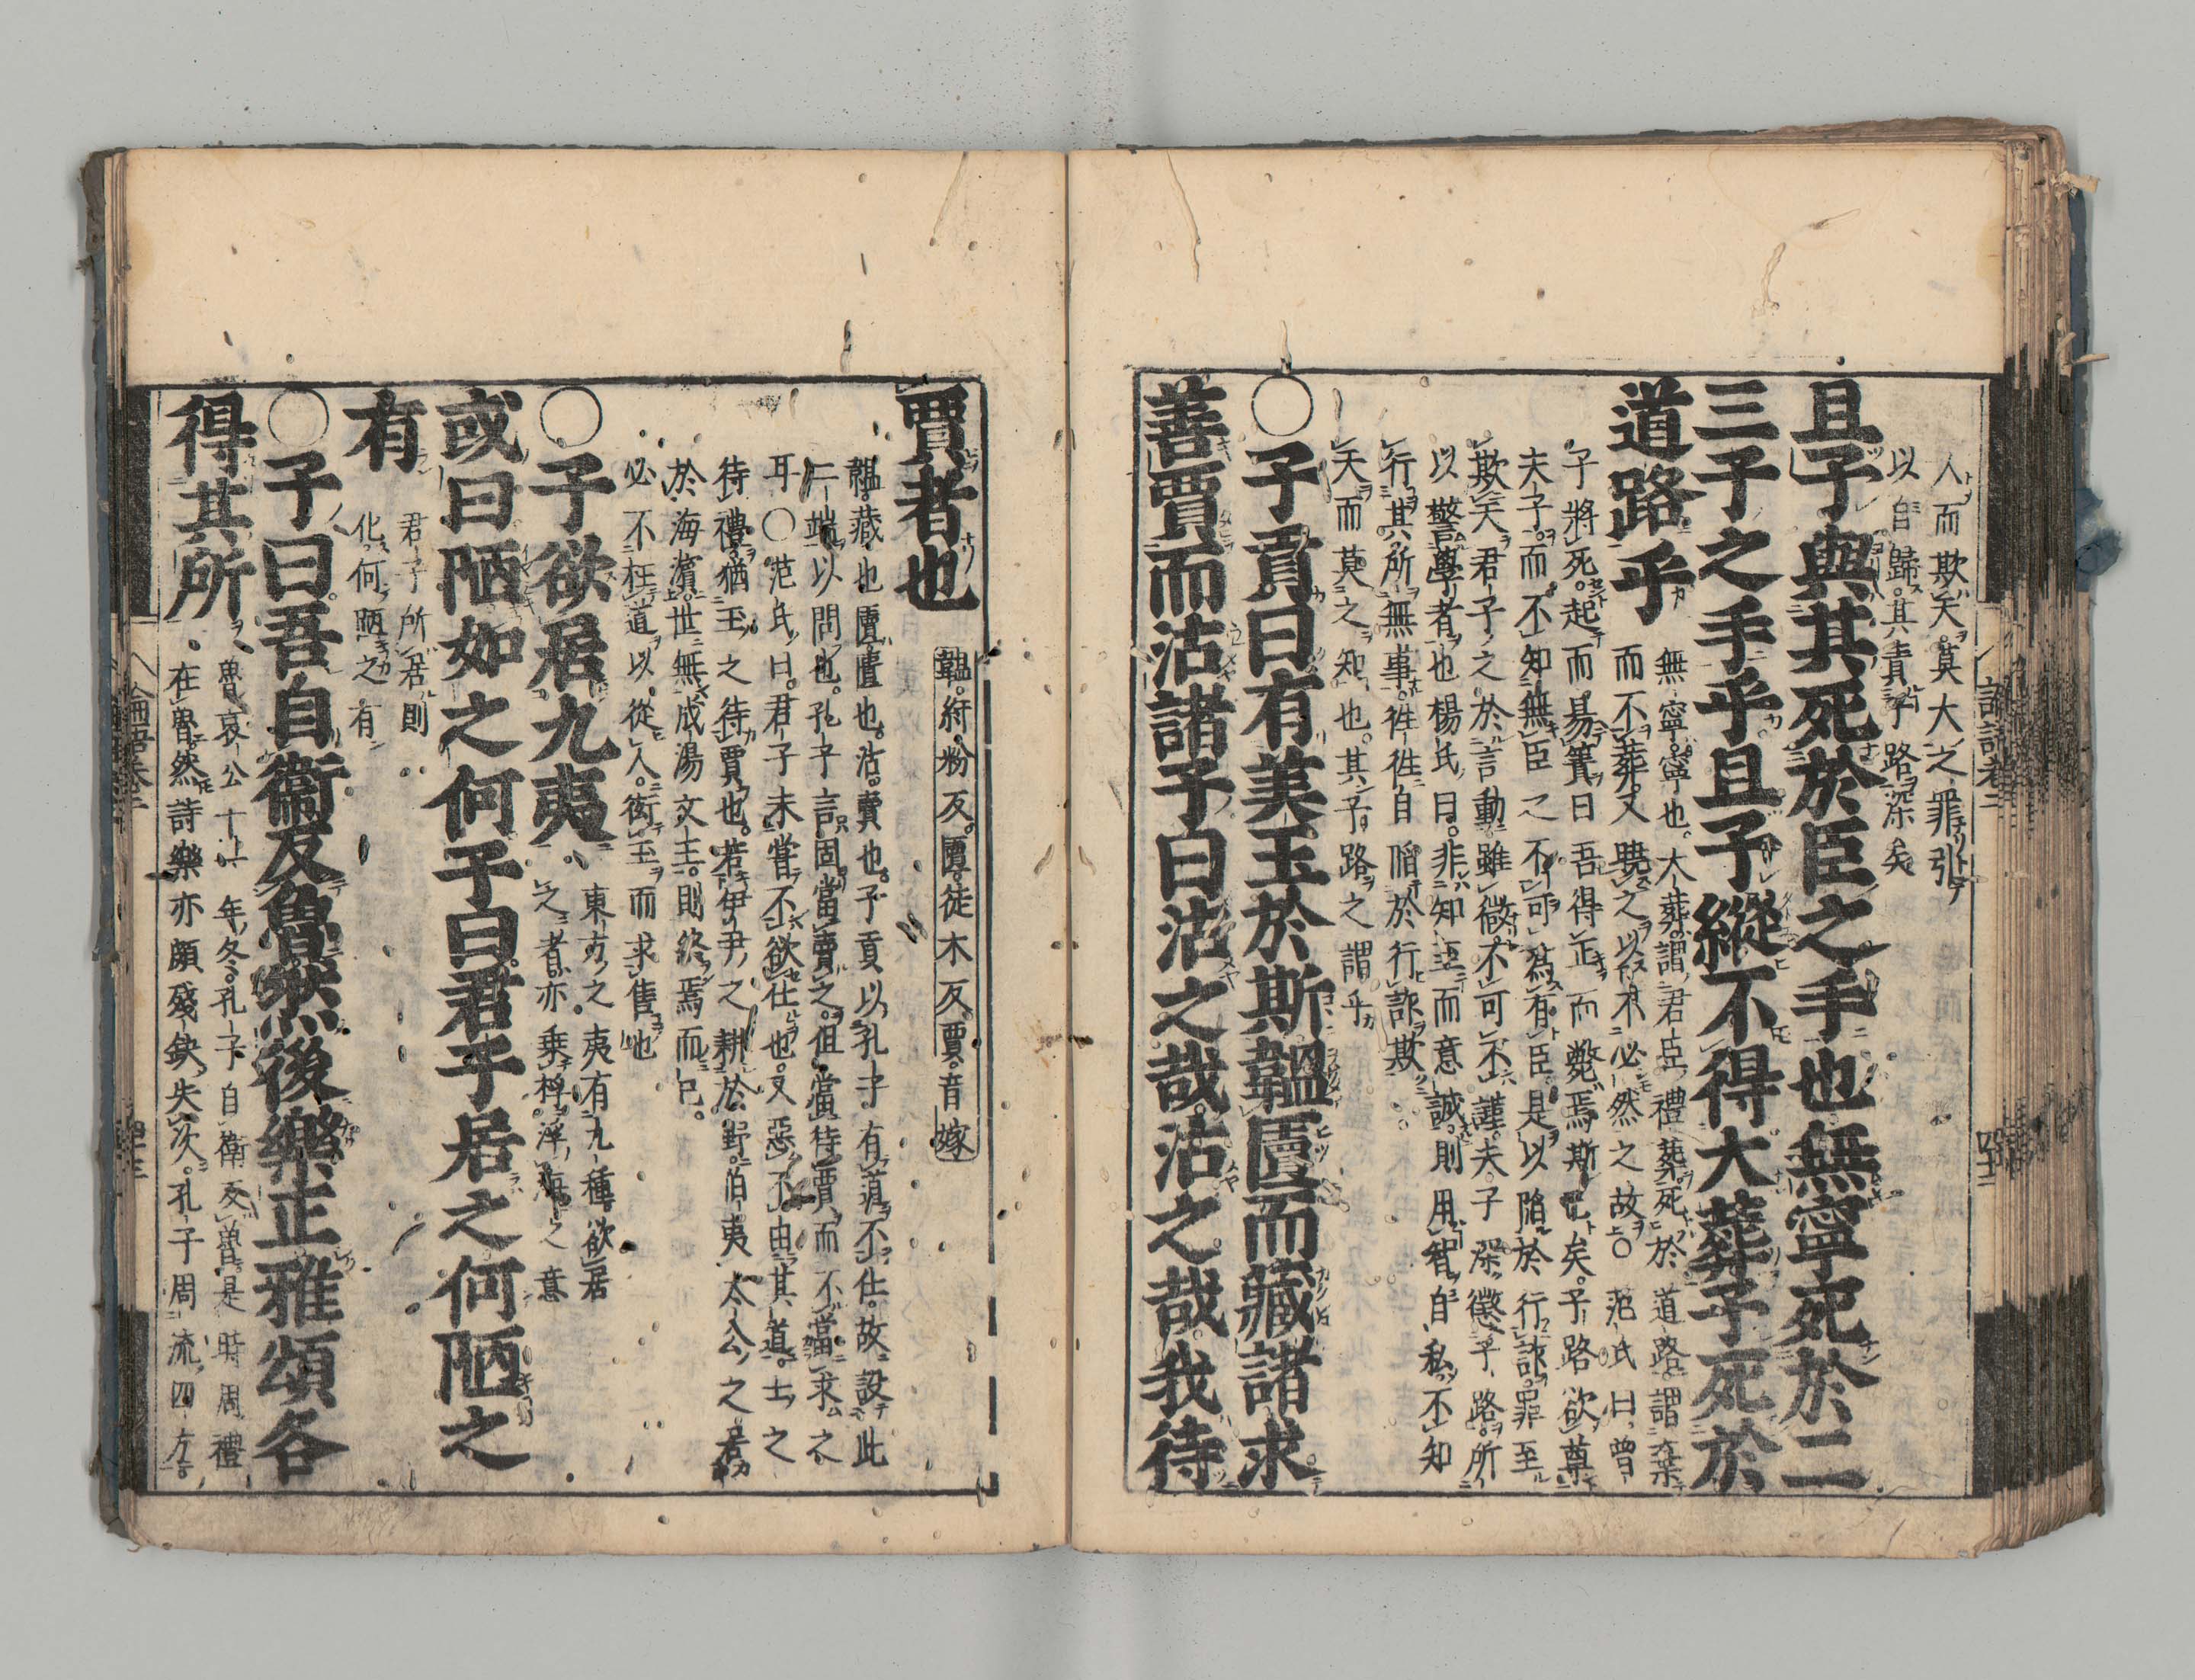 人而欺天。莫大之罪引
以自歸。其責子路深矣
且子與其死於臣之手也無寧死於二
三子之手乎且子縱不得大葬予死於
道路乎
無寧。寧也。大葬。謂君臣禮葬。死於道路。謂棄
而不葬。又曉之以不必然之故○范氏曰。曾
子將死。起而易簀曰吾得正而斃焉斯已矣。子路欲尊
夫子。而不知無臣之不可爲有臣。是以陷於行詐。罪至
欺天。君子之於言動。雖微不可不謹。夫子深懲子路。所
以警學者也楊氏曰。非知至而意誠。則用智自私。不知
行其所無事。徃徃自陷於行詐欺
天而莫之知也。其子路之謂乎
○子貢曰有美玉於斯韞匵而藏諸求
善賈而沽諸子曰沽之哉沽之哉我待
賈者也
韞。紆粉反。匵。徒木反。賈。音嫁
韞。藏也。匵。匱也。沽。賣也。子貢以孔子有道不仕。故設此
二端以問也。孔子言固當賣之。但當待賈。而不當求之
耳○范氏曰。君子未嘗不欲仕也。又惡不由其道。士之
待禮。猶玉之待賈也。若伊尹之耕於野。伯夷太公之居
於海濱。世無成湯文王。則終焉而已。
必不枉道以從人。衒玉而求售也
○子欲居九夷
東方之夷有九種。欲居
之者。亦乘桴浮海之意
或曰陋如之何子曰君子居之何陋之
有
君子所居則
化。何陋之有
○子曰吾自衞反魯然後樂正雅頌各
得其所
魯哀公十一年冬。孔子自衛反魯。是時周禮
在魯。然詩樂亦頗殘缺失次。孔子周流四方。